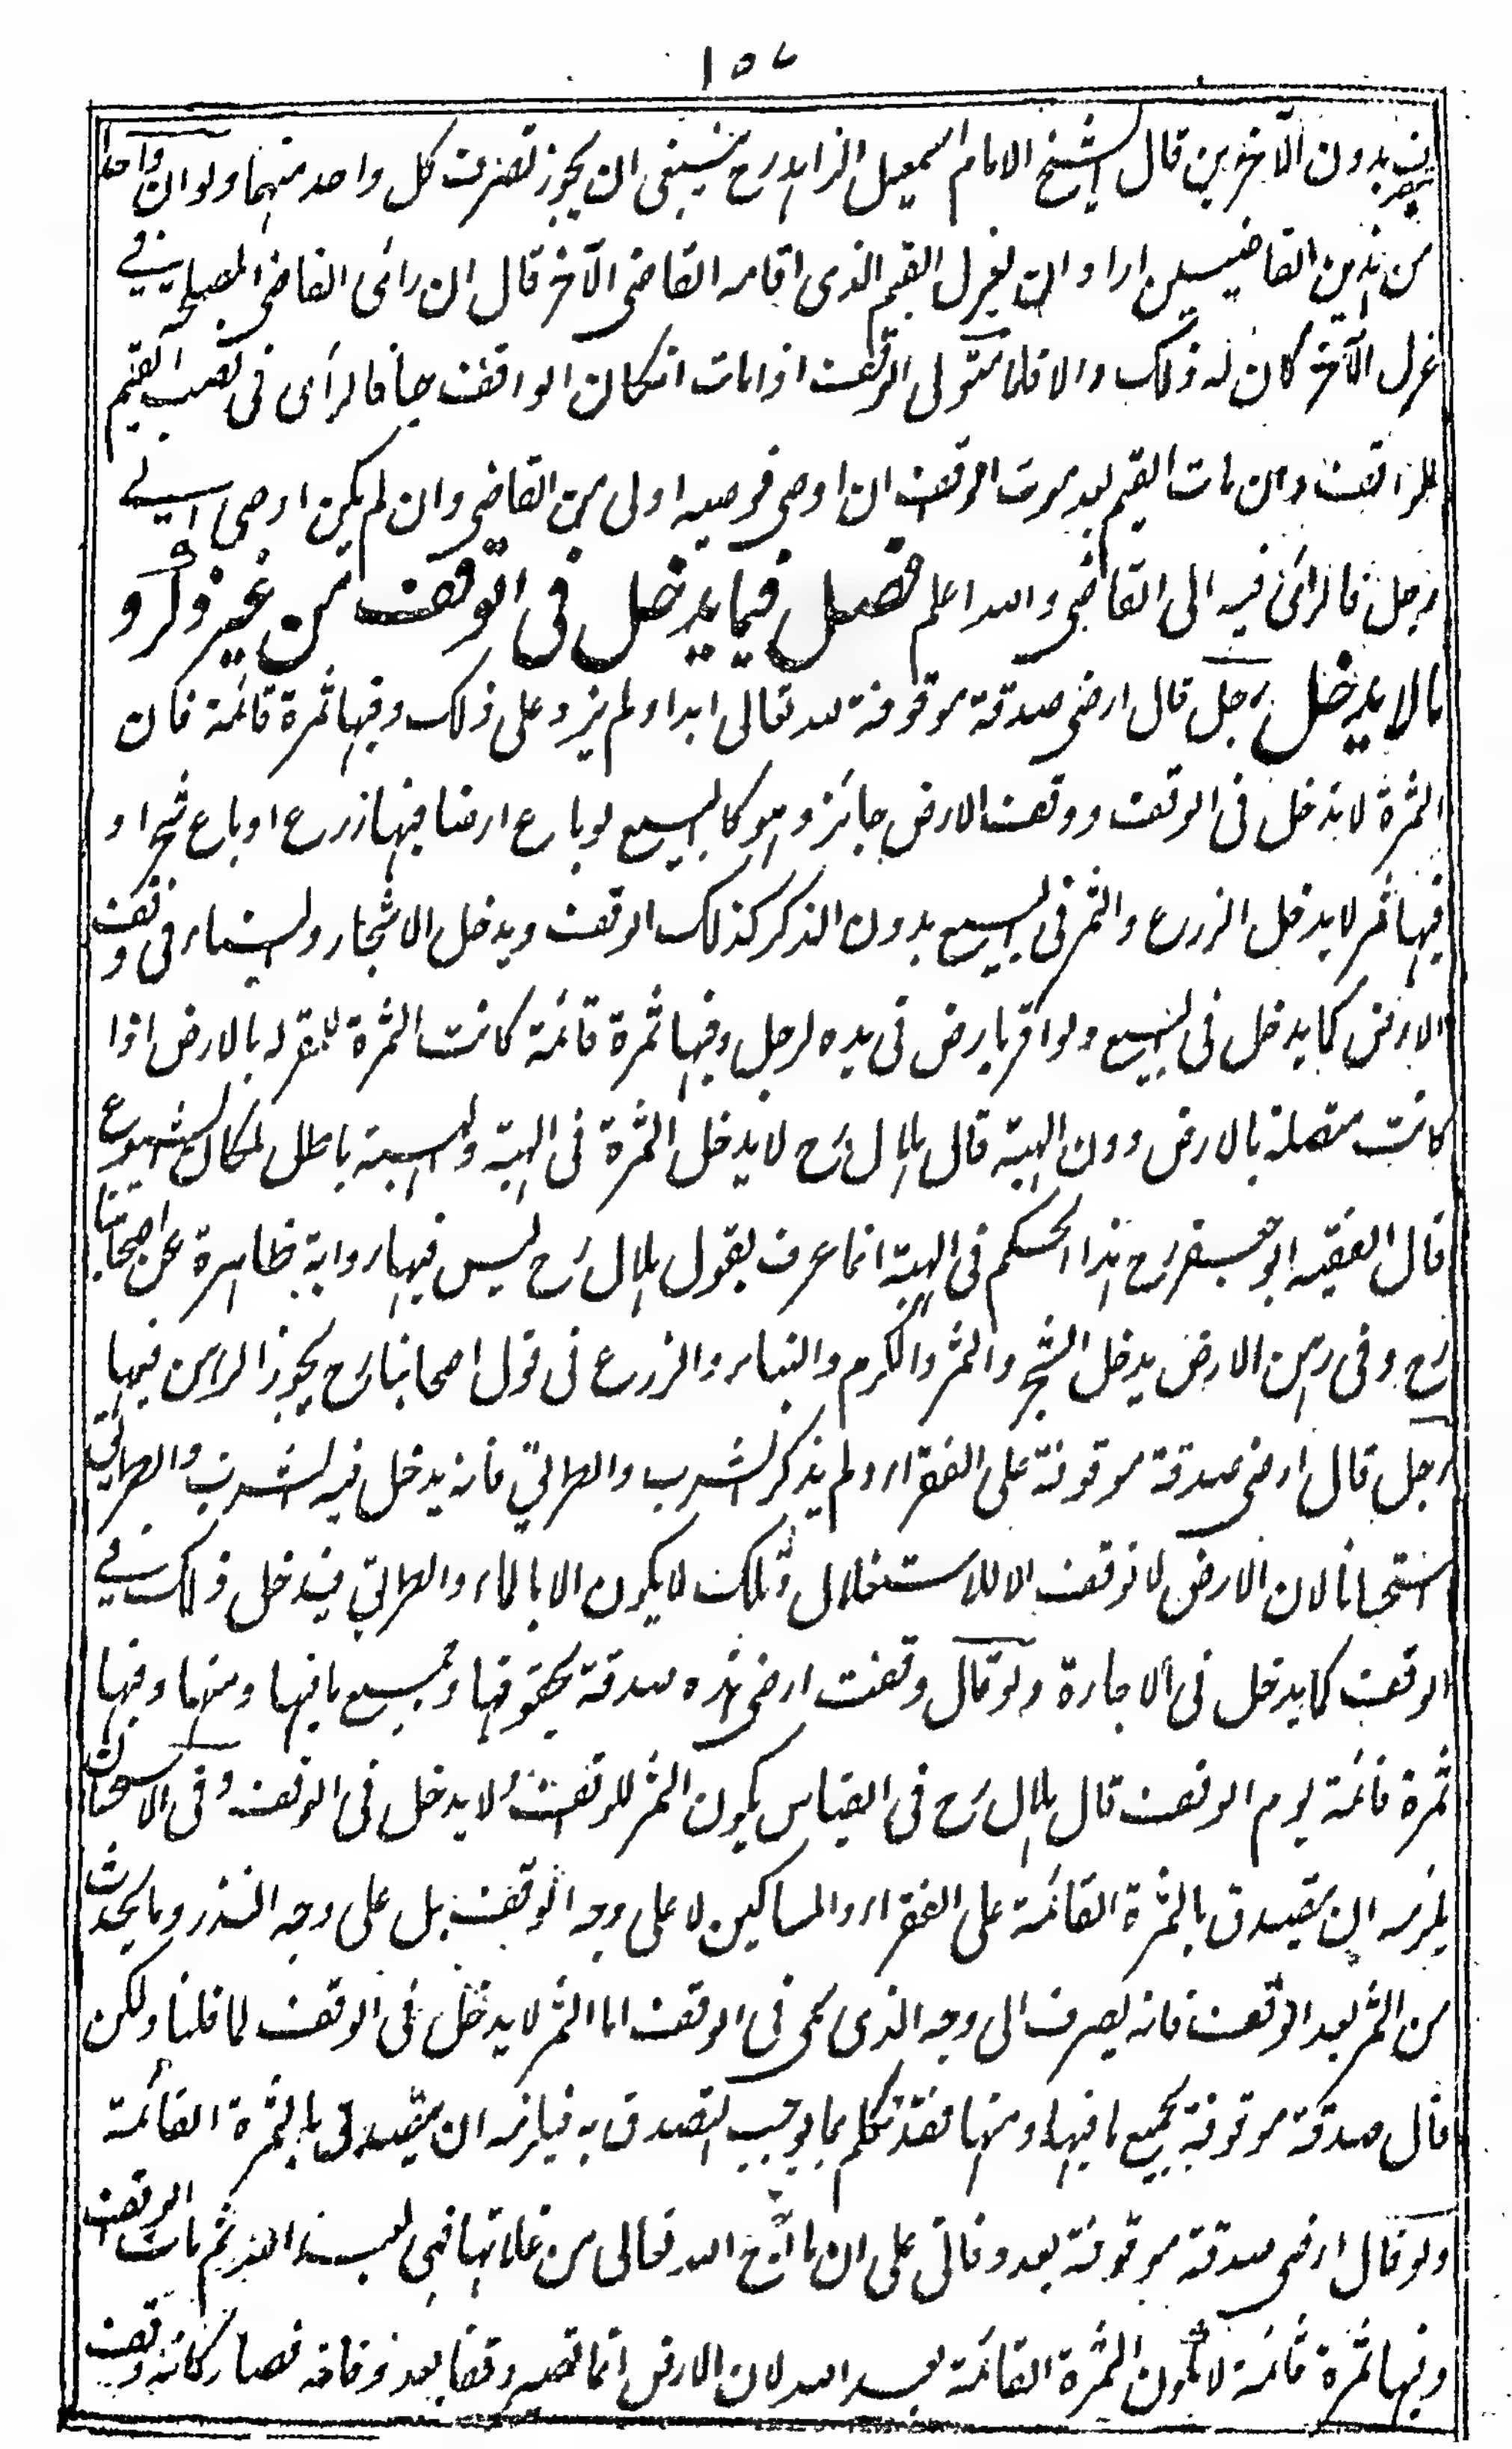 ١٥٧
يتصرف بدون الآخرين قال الشيخ الامام اسمعيل الزاهد رح ينبغى ان يجوز تصرف كل واحد منهما ولو ان واحدا
من هذين القاضيين اراد ان يعزل القيم الذى اقامه القاضى الآخر قال ان رأى القاضى المصلحة فى
عزل الآخر كان له ذلك والا فلا متولى الوقف اذا مات انكان الواقف حيا فالرأى فى نصب القيم
للواقف وان مات القيم بعد موت الواقف ان اوصى فوصيه اولى من القاضى وان لم يكن اوصى الى
رجل فالرأى فيه الى القاضى والله اعلم فصل فيما يدخل فى الوقف من غير ذكره و
مالا يدخل رجل قال ارضى صدقة موقوفة لله تعالى ابدا ولم يزد على ذلك وفيها ثمرة قائمة فان
الثمرة لا تدخل فى الوقف ووقف الارض جائز وهو كالبيع لو باع ارضا فيها زرع او باع شجرا و
فيها ثمر لا يدخل الزرع والثمر فى البيع بدون الذكر كذلك الوقف ويدخل الاشجار والبناء فى وقف
الارض كما يدخل فى البيع ولو اقر بارض فى يده لرجل وفيها ثمرة قائمة كانت الثمرة للمقر له بالارض اذا
كانت متصلة بالارض دون الهبة قال هلال رح لا يدخل الثمرة فى الهبة والهبة باطل لمكان الشيوع
قال الفقيه ابو جعفر رح هذا الحكم فى الهبة انما عرف بقول هلال رح ليس فيها رواية ظاهرة عن اصحابنا
رح وفى رهن الارض يدخل الشجر والثمر والكرم والبناء والزرع فى قول اصحابنا رح يجوز الرهن فيها
رجل قال ارضى صدقة موقوفة على الفقراء ولم يذكر الشرب والطريق فانه يدخل فيه الشرب والطريق
استحسانا لان الارض لا توقف الا للاستغلال وذلك لا يكون الا بالماء والطريق فيدخل ذلك فى
الوقف كما يدخل فى الاجارة ولو قال وقفت ارضى هذه صدقة بحقوقها وجميع ما فيها ومنها وفيها
ثمرة قائمة يوم الوقف قال هلال رح فى القياس يكون الثمر للواقف ولا يدخل فى الوقف وفى الاستحسان
يلزمه ان يتصدق بالثمرة القائمة على الفقراء والمساكين لا على وجه الوقف بل على وجه النذر وما يحدث
من الثمر بعد الوقف فانه يصرف الى وجه الذى سمى فى الوقف اما الثمر لا يدخل فى الوقف لما قلنا ولكن
قال صدقة موقوفة بجميع ما فيها ومنها فقد تكلم بما يوجب التصدق به فيلزمه ان يتصدق بالثمرة القائمة
ولو قال ارضى صدقة موقوفة بعد وفاتى على ان ما اخرج الله تعالى من غلاتها فهى لعبد الله ثم مات الواقف
وفيها ثمرة قائمة لا تكون الثمرة القائمة لعبد الله لان الارض انما تصير وقفا بعد وفاته فصار كانه وقف